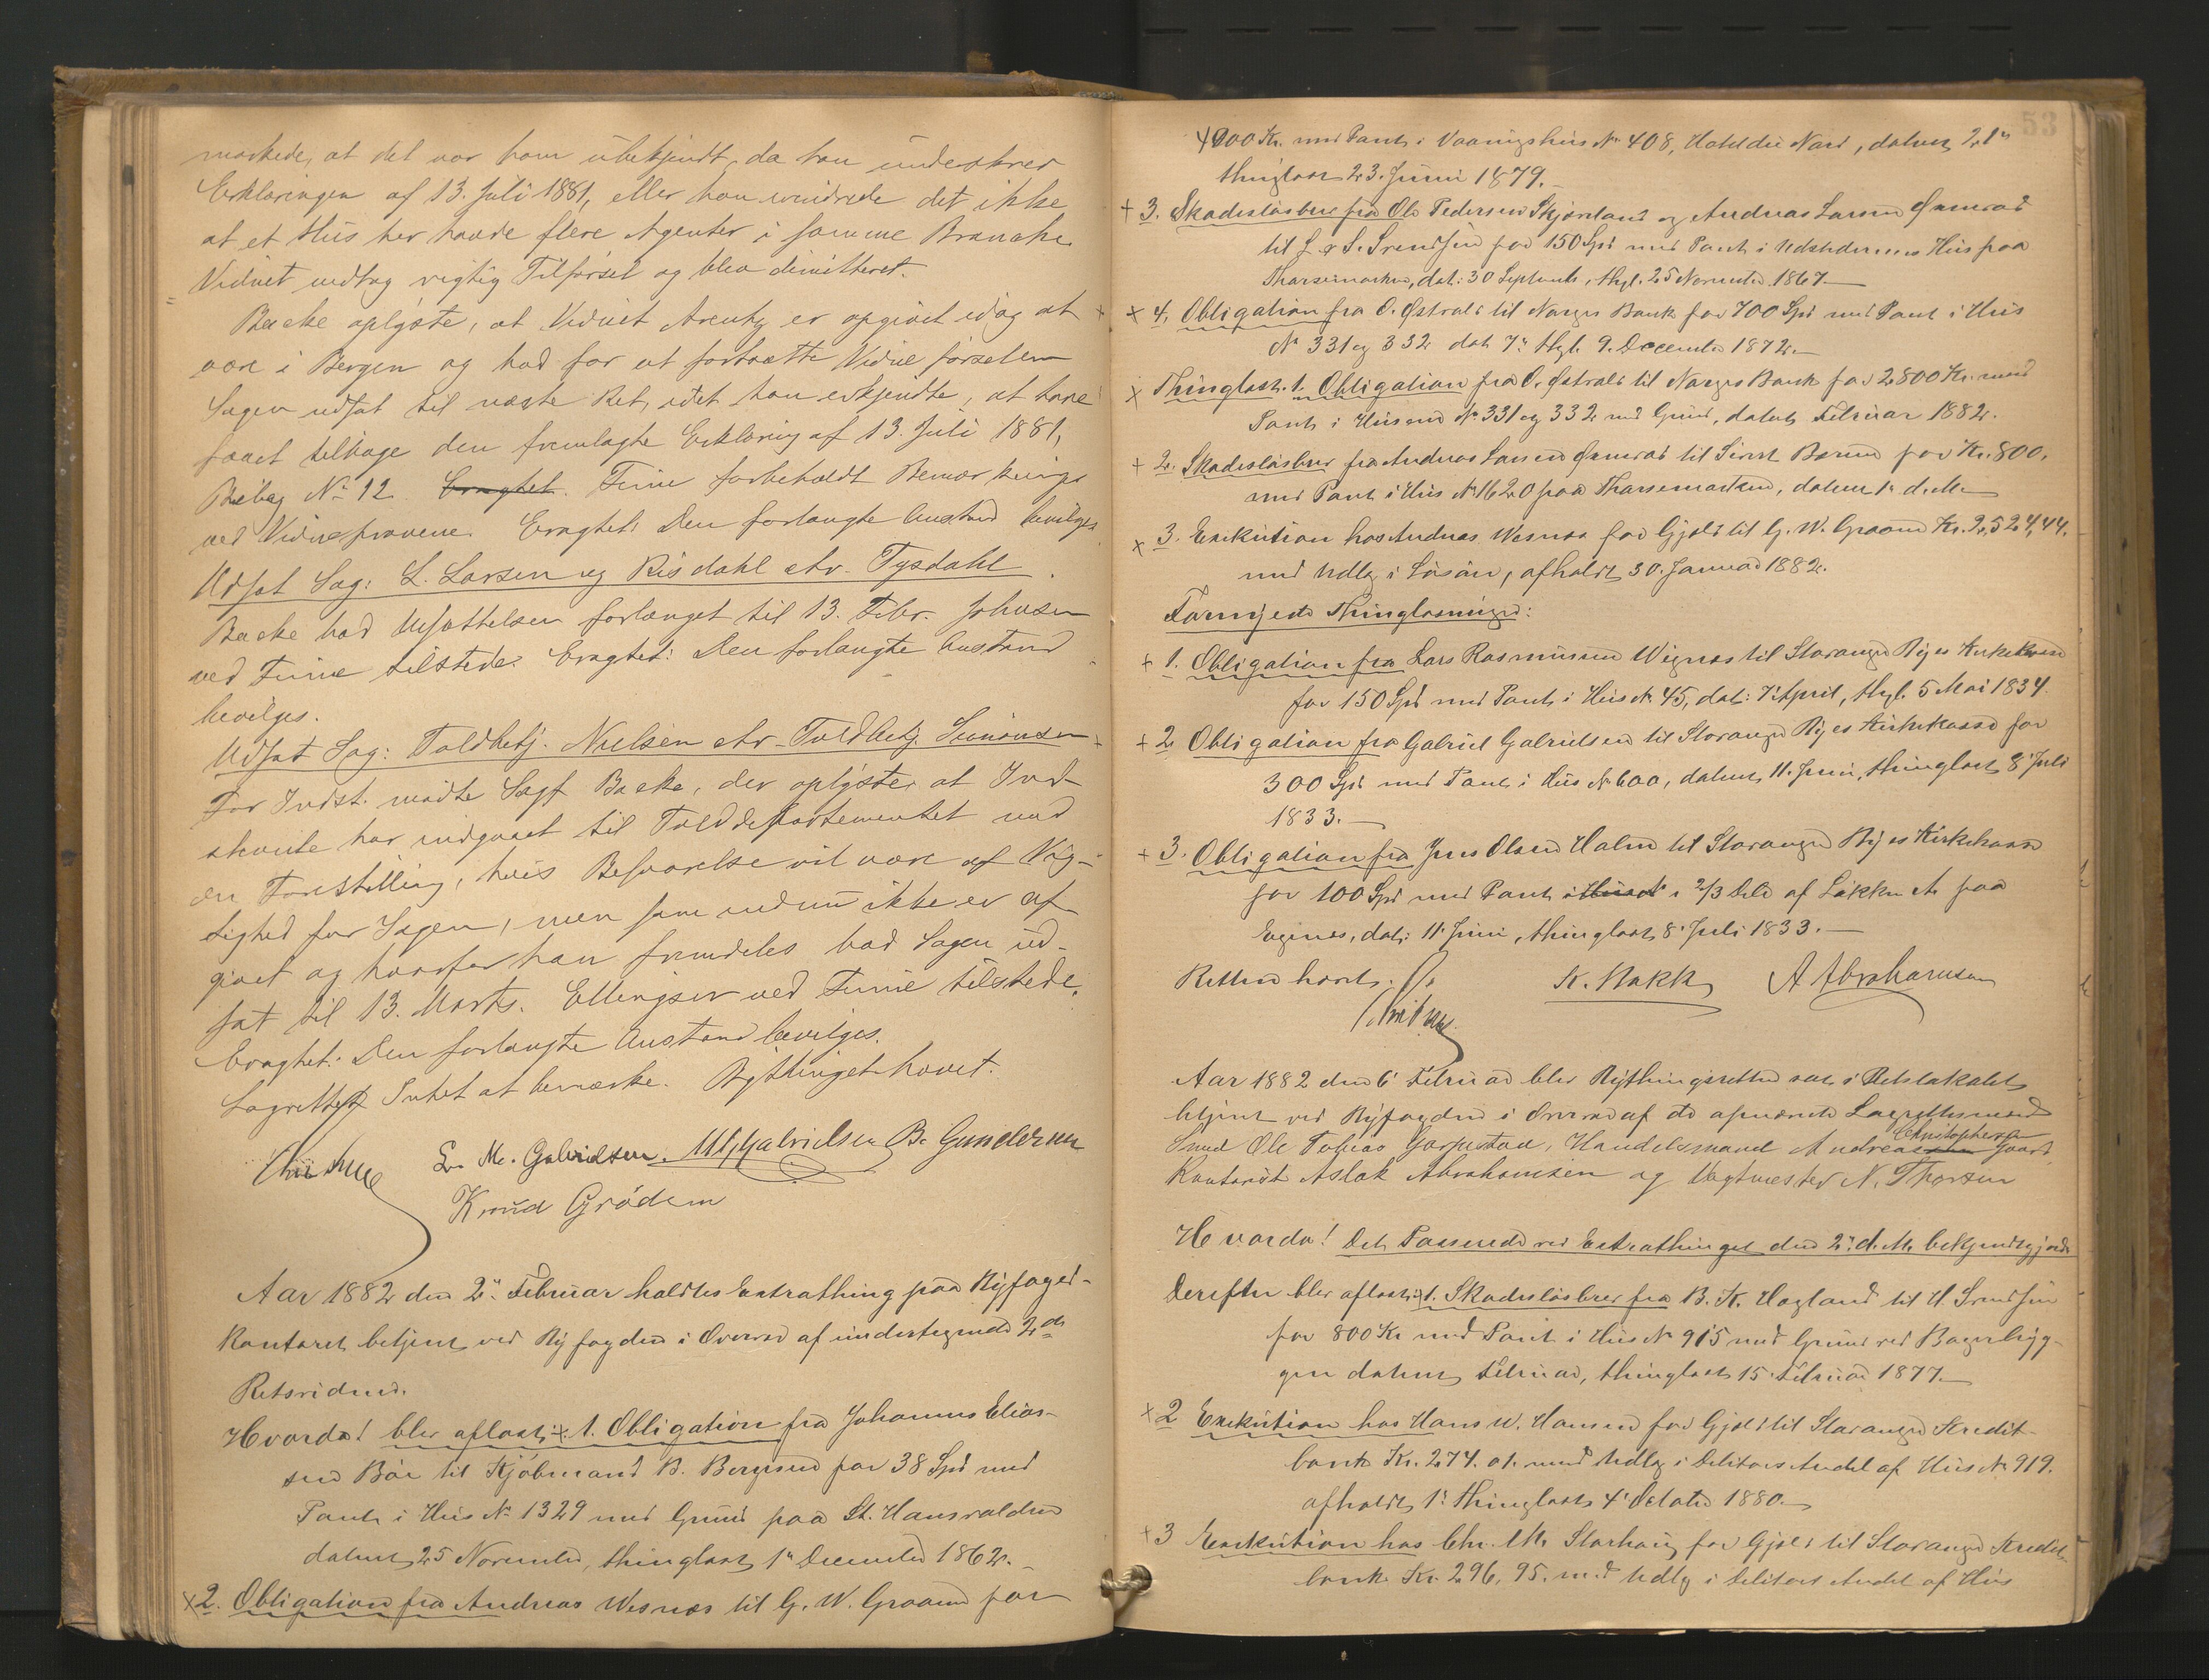 mærkede, at det var ham ubekjendt, da han underskrev
Erklæringen af 13. Juli 1881, eller han erindrede det ikke
at et Hus her havde flere Agenter i samme Branche.
Vidnet vedtog rigtig Tilførsel og blev dimitteret.
Backe oplyste, at Vidnet er opgivet idag at
være i Bergen og bad for at fortsætte Vidneførselen
Sagen udsat til næste Ret, idet han erkjendte, at have
faaet tilbage den fremlagte Erklæring af 13. Juli 1881,
Bilag No 12. Eragtet. Finne forbeholdt Bemærkninger
ved Vidneprovene. Eragtet: Den forlangte Anstand bevilges.
Udsat Sag: L. Larsen og Risdahl ctr. Tysdahl
Backe bad Udsættelsen forlænget til 13. Febr. Johnsen
ved Finne tilstede. Eragtet: Den forlangte Anstand
bevilges.
Udsat Sag: Toldbetj. Nielsen ctr. Toldbetj. Simonsen
For Indst. mødte Sagf. Backe, der oplyste, at Ind-
stevnte har indgaaet til Tolddepartementet med
en Forestilling, hvis Besvarelse vil være af Vig-
tighed for Sagen, men som endnu ikke er af-
givet og hvorfor han fremdeles bad Sagen ud-
sat til 13. Marts. Ellingsen ved Finne tilstede.
Eragtet: Den forlangte Anstand bevilges.
Lagrettet Intet at bemærke. Bythinget hævet.
L. M. Gabrielsen. Gabrielsen B. Gundersen
Knud Grødem
Aar 1882 den 2den Februar holdtes Extrathing paa Byfoged-
kontoret betjent ved Byfogden i Overvær af undertegnede 2de
Retsvidner.
Hvorda! blev aflæst: + 1. Obligation fra Johannes Elias-
sen Bøe til Kjøbmand B. Bergesen for 38 Spd med
Pant i Hus No 1329 med Grund paa St. Hansvolden
dateret 25 November, thinglæst 1ste December 1862.
+ 2. Obligation fra Andreas Wesnes til G. W. Graarud for
53
4000 Kr. med Pant i Vaaningshus No 408, dateret 21de
thinglæst 23. Juni 1879.
+ 3. Skadesløsbrev fra Ole Pedersen Skjørland og Andreas Larsen
til L. & S. Svendsen for 150 Spd med Pant i Udstederens Hus paa
dat: 30 September, thgl. 25 November 1867.
+ 4. Obligation fra O. Østrald til Norges Bank for 700 Spd med Pant i Hus
No 331 og 332 dat. 7de thgl. 9. December 1872.
+ Thinglæst. 1. Obligation fra O. Østrald til Norges Bank for 2800 Kr. med
Pant i Husene No 331 og 332 med Grund, dateret Februar 1882.
+ 2. Skadesløsbrev fra Andreas Larsen til for Kr. 800,
med Pant i Hus No 1620 paa dateret 1ste d. M.
+ 3. Exekution hos Andreas Wesnes for Gjæld til G. W. Graarud Kr. 2,524,44.
med Udlæg i Løsøre, afholdt 30. Januar 1882.
Fornyede Thinglæsninger:
+ 1. Obligation fra Lars Rasmussen Wignes til Stavanger Byes Kirkekasse
for 150 Spd med Pant i Hus No 45, dat: 7 April, thgl. 5 Mai 1834.
+ 2 Obligation fra Gabriel Gabrielsen til Stavanger Byes Kirkekasse for
300 Spd med Pant i Hus No 600, dateret 11. Juni, thinglæst 8 Juli
1833.
+ 3. Obligation fra Jens Olsen Holm til Stavanger Byes Kirkekasse
for 100 Spd med Pant i Hus No i 2/3 Dele af Løkken A. paa
Egenes, dat: 11 Juni, thinglæst 8 Juli 1833.
Retten hævet.
K. Stakk A Abrahamsen
Aar 1882 den 6 Februar blev Bythingsretten sat i Retslokalet
betjent ved Byfogden i Overvær af de opnævnte Lagrettesmænd
Smed Ole Tobias Gorpestad, Handelsmand Andreas Christophersen Gaard
Kontorist Aslak Abrahamsen og Vagtmester N. Thorsen
Hvorda! Det Passerede ved Extrathinget den 2den d. M. bekjendtgjordt
Derefter blev aflæst: + 1. Skadesløsbrev fra B. K. Hagland til H. Svendsen
for 800 Kr med Pant i Hus No 915 med Grund ved Bagerbryg-
gen dateret Februar, thinglæst 15 Februar 1877.
+ 2 Exekution hos Hans W. Hansen for Gjæld til Stavanger Kredit-
bank Kr. 274. 01. med Udlæg i Debitors Andel af Hus No 919.
afholdt 1ste thinglæst 4 Oktober 1880.
+ 3 Exekution hos Chr. M. Storhaug for Gjæld til Stavanger Kredit-
bank Kr. 296, 95. med Udlæg i Debitors Andel af Hus